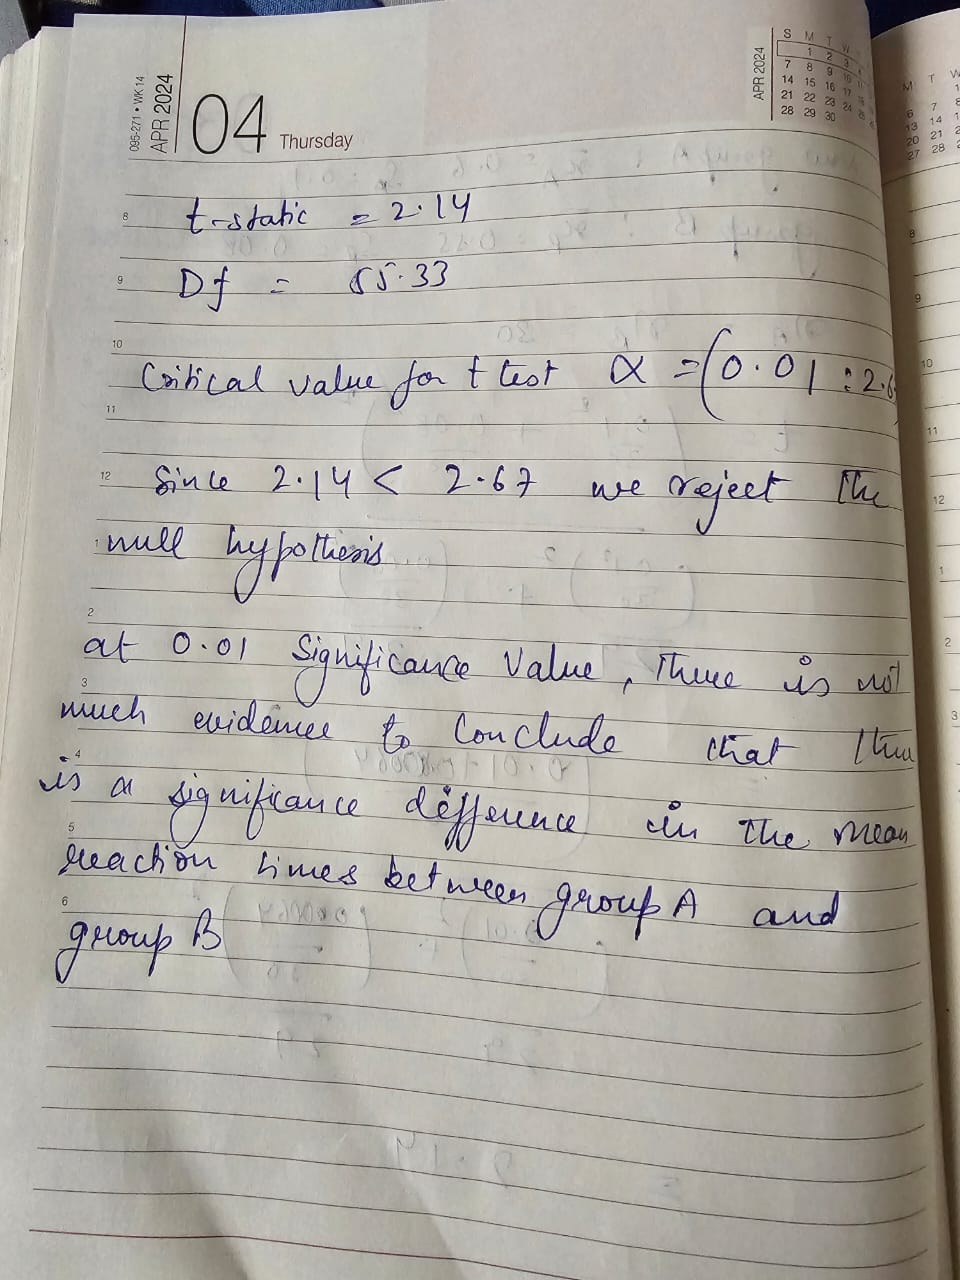 095-271 • WK 14
APR 2024
04 Thursday
APR 2024
S M T W
1 2 3
7 8 9 10
14 15 16 17
21 22 23 24
28 29 30
M T W
6 7 8
13 14
20 21
27 28
8 t-static = 2.14
9 Df = 55.33
10
Critical value for t test α = (0.01 : 2.6
11
12 Since 2.14 < 2.67 we reject the
1 null hypothesis
2
at 0.01 Significance Value, There is not
3
much evidence to Conclude that
4
is a significance difference in the mean
5
reaction times between group A and
6
group B
8
9
10
11
12
1
2
3